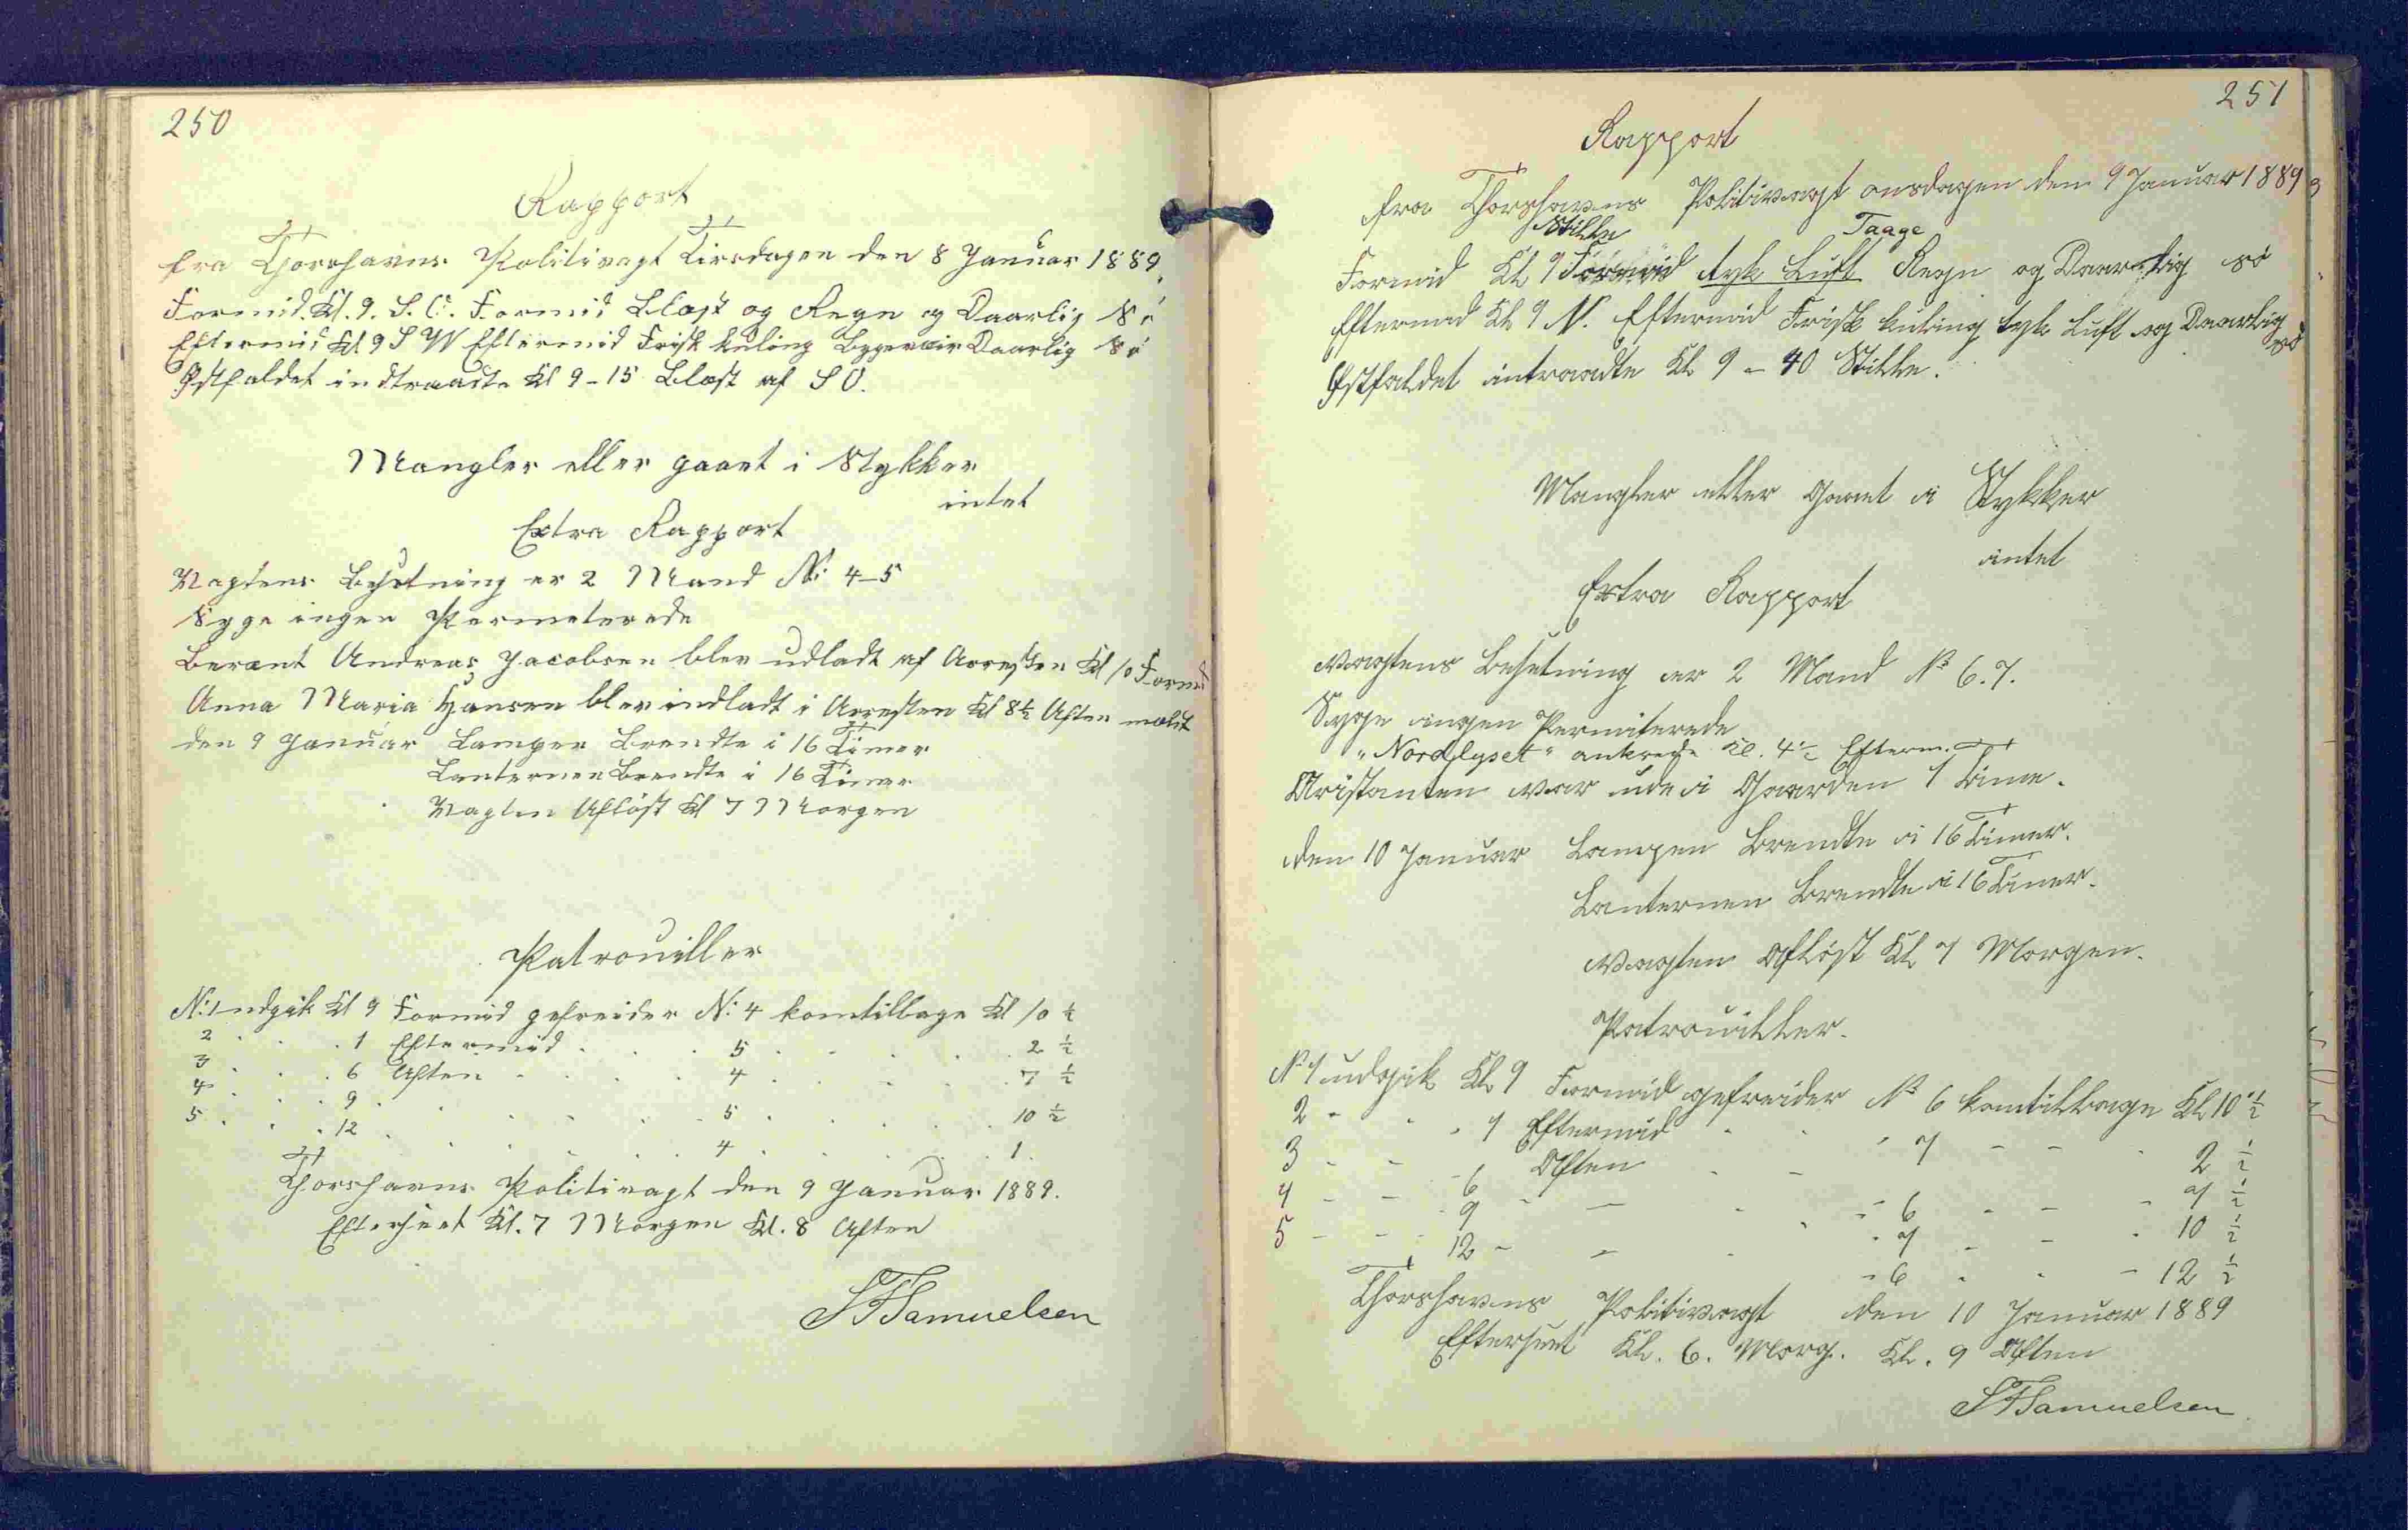 250
Rapport
fra Thorshavns Politivagt Tirsdagen den 8 Januar 1889.
Formid. Kl. 9. S. O. Formid Blæst og Regn og Daarlig Sö
Eftermid Kl 9 S W Eftermid Frisk kuling Bygeveir Daarlig Sö
Östfaldet indtraadte Kl 9-15 Blæst af S O.
Mangler eller gaaet i Stykker
intet
Extra Rapport
Vagtens Besetning er 2 Mand N: 4-5
Syge ingen Permeterede
Berent Andreas Jacobsen blev udladt af Arresten Kl 10 Formd
Anna Maria Hansen blev indladt i Arresten Kl 8½ Aften
den 9 Januar Lampen Brendte i 16 Timer
Lanternen Brendte i 16 Timer
Vagten Aflöst Kl 7 Morgen
Patrouiller
N: 1 udgik Kl 9 Formid gefreider N: 4 komtilbage Kl 10 ½
2 . . . 1 Eftermid . . . 5 . . . . 2 ½
3 . . . 6 Aften . . . 4 . . . . 7 ½
4 . . . 9 . . . . 5 . . . . 10 ½
5 . . . 12 . . . . 4 . . . . 1.
Thorshavns Politivagt den 9 Januar 1889.
Efterseet Kl. 7 Morgen Kl. 8 Aften
Samuelsen
251
Rapport
fra Thorshavns Politivagt onsdagen den 9 Januar 1889
Stille Taage
Formid Kl 9 Formid tyk Luft Regn og Daarlig sö
Eftermad Kl 9 N. Eftermid Frisk kuling tyk Luft og Daarlig
sö
Östfaldet intraadte Kl 9 - 40 Stille.
Mangler eller Gaaet i Stykker
intet
Extra Rapport
Vagtens Besetning er 2 Mand No 6. 7.
Syge ingen Permiterede
"Nordlyset" ankrede Kl. 4½ Efterm.
Aristanten var ude i Gaarden 1 Time.
den 10 Januar Lampen Brendte i 16 Timer.
Lanternen Brendte i 16 Timer.
Vagten Aflöst Kl 7 Morgen.
Patrouiller.
No 1 udgik Kl 9 Formid gefreider No 6 komtilbage Kl 10 ½
2 - . . 1 Eftermid . . . 7 - - . 2 ½
3 - - - 6 Aften - - - 6 - - - 7 ½
4 - - . 9 - - . . 7 - - . 10 ½
5 - - . 12 - - . - 6 . . - 12 ½
Thorshavns Politivagt den 10 Januar 1889
Efterseet Kl. 6. Morg. Kl. 9 Aften
Samuelsen